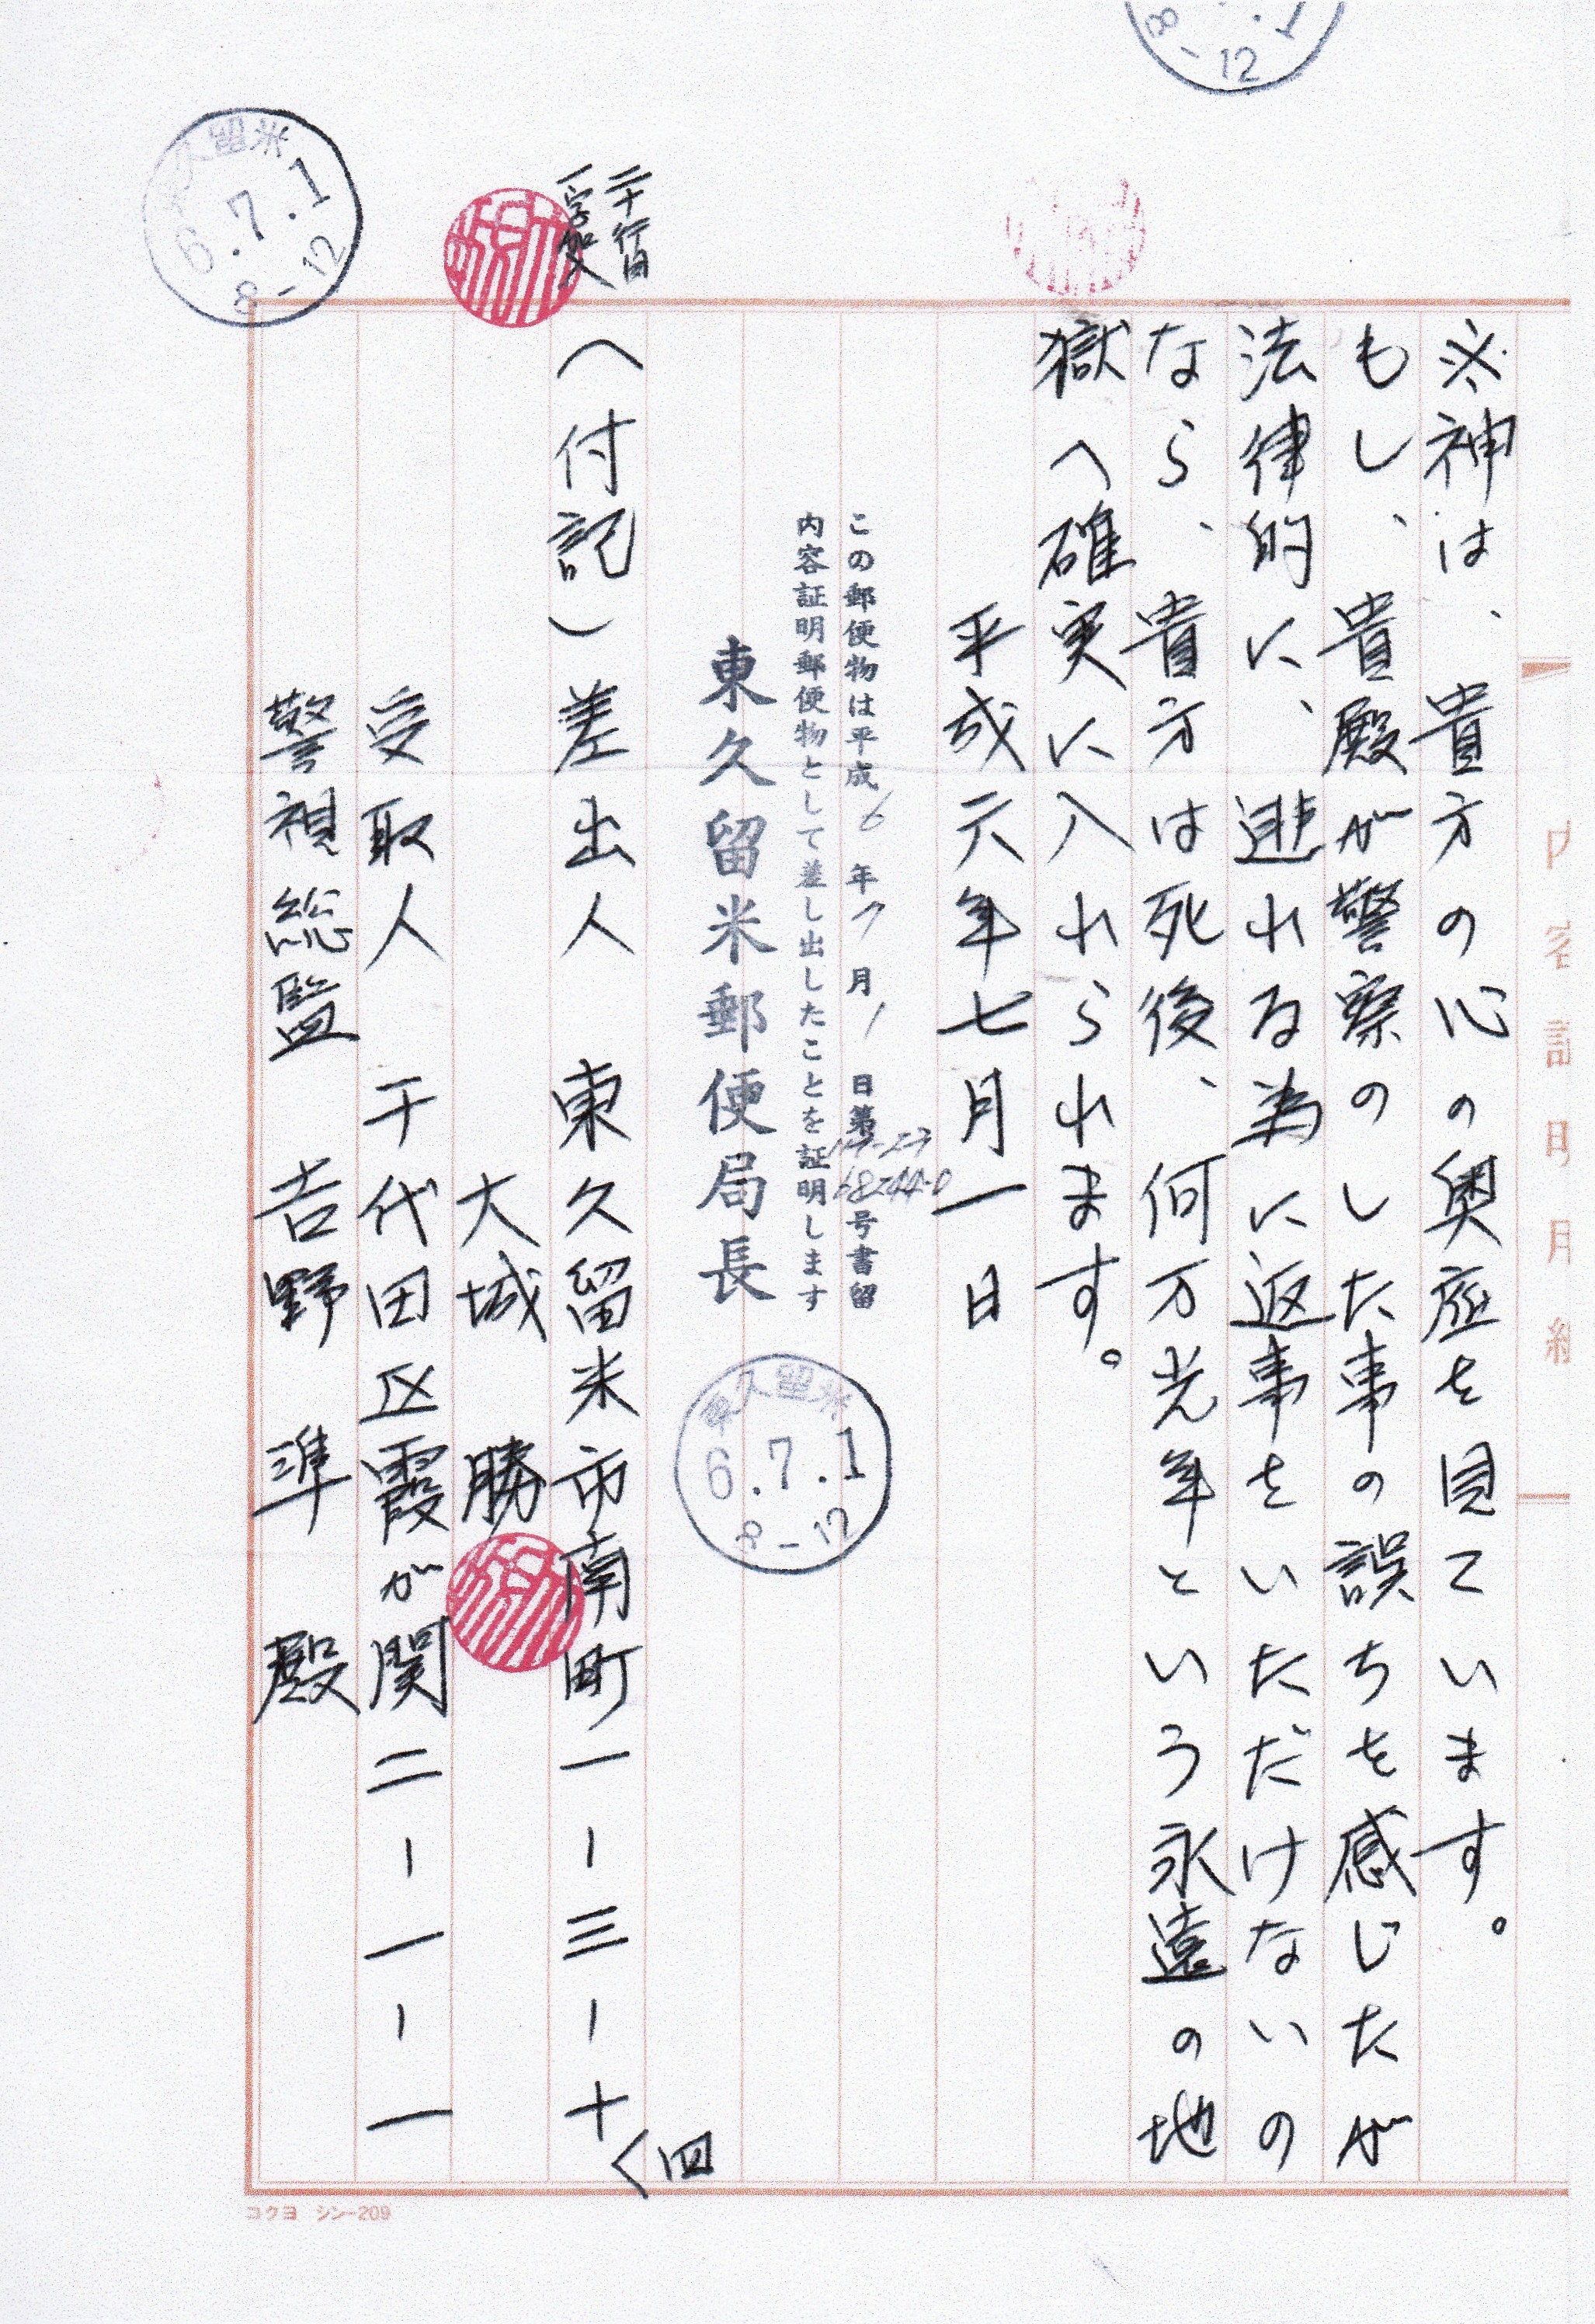 内容証明用紙
※神は、貴方の心の奥底を見ています。
もし、貴殿が警察のした事の誤ちを感じたが
法律的に、逃れる為に返事をいただけないの
なら、貴方は死後、何万光年という永遠の地
獄へ確実に入れられます。
平成六年七月一日
この郵便物は平成6年7月1日第 68244-0号書留
内容証明郵便物として差し出したことを証明します
東久留米郵便局長
東久留米
6.7.1
8-12
二十行目
一字加入
(付記)差出人 東久留米市南町一ー三ー十
四
大城 勝
受取人 千代田区霞が関二ー一ー一
警視総監 吉野 準 殿
久留米
6.7.1
8-12
.1
8-12
コクヨ シン-209